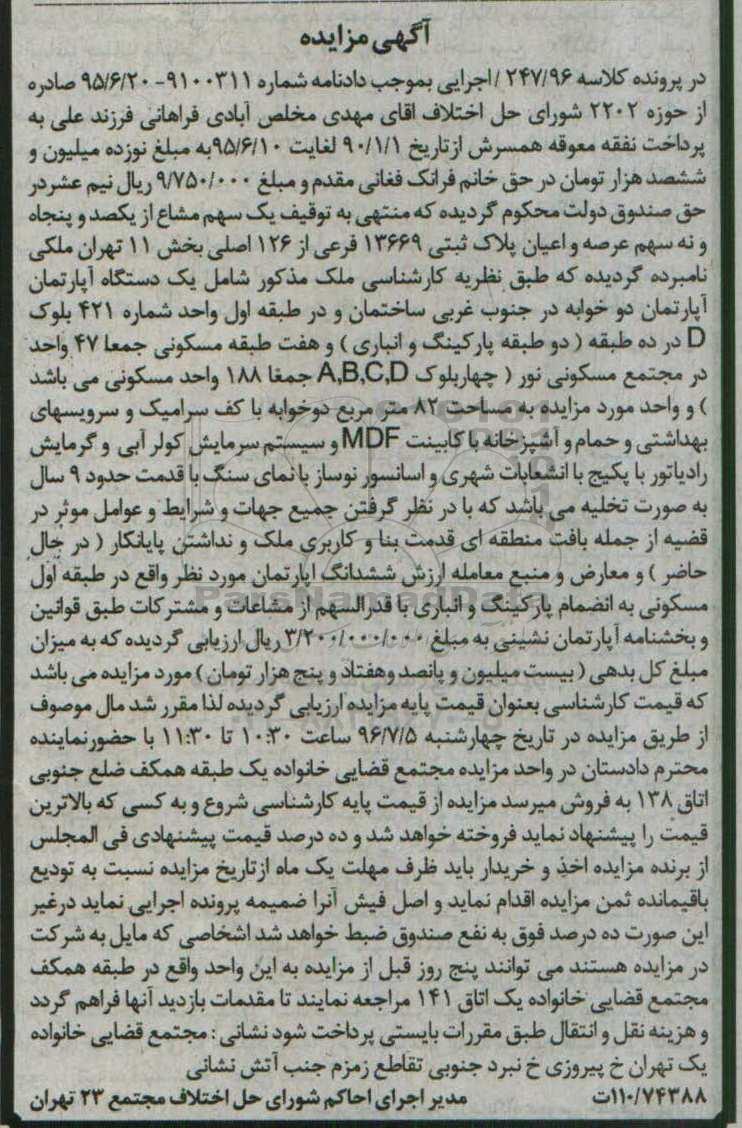 آگهی مزایده
در پرونده کلاسه ۲۴۷/۹۶ /اجرایی بموجب دادنامه شماره ۹۱۰۰۳۱۱-۹۵/۶/۲۰ صادره
از حوزه ۲۲۰۲ شورای حل اختلاف اقای مهدی مخلص آبادی فراهانی فرزند علی به
پرداخت نفقه معوقه همسرش ازتاریخ ۹۰/۱/۱ لغایت ۹۵/۶/۱۰به مبلغ نوزده میلیون و
ششصد هزار تومان در حق خانم فرانک فغانی مقدم و مبلغ ۹/۷۵۰/۰۰۰ ریال نیم عشردر
حق صندوق دولت محکوم گردیده که منتهی به توقیف یک سهم مشاع از یکصد و پنجاه
و نه سهم عرصه و اعیان پلاک ثبتی ۱۳۶۶۹ فرعی از ۱۲۶ اصلی بخش ۱۱ تهران ملکی
نامبرده گردیده که طبق نظریه کارشناسی ملک مذکور شامل یک دستگاه آپارتمان
آپارتمان دو خوابه در جنوب غربی ساختمان و در طبقه اول واحد شماره ۴۲۱ بلوک
D در ده طبقه ( دو طبقه پارکینگ و انباری ) و هفت طبقه مسکونی جمعا ۴۷ واحد
در مجتمع مسکونی نور ( چهاربلوک A,B,C,D جمعا ۱۸۸ واحد مسکونی می باشد
) و واحد مورد مزایده به مساحت ۸۲ متر مربع دوخوابه با کف سرامیک و سرویسهای
بهداشتی و حمام و آشپزخانه با کابینت MDF و سیستم سرمایش کولر آبی و گرمایش
رادیاتور با پکیج با انشعابات شهری و اسانسور نوساز با نمای سنگ با قدمت حدود ۹ سال
به صورت تخلیه می باشد که با در نظر گرفتن جمیع جهات و شرایط و عوامل موثر در
قضیه از جمله بافت منطقه ای قدمت بنا و کاربری ملک و نداشتن پایانکار ( در حال
حاضر ) و معارض و منبع معامله ارزش ششدانگ اپارتمان مورد نظر واقع در طبقه اول
مسکونی به انضمام پارکینگ و انباری با قدرالسهم از مشاعات و مشترکات طبق قوانین
و بخشنامه آپارتمان نشینی به مبلغ ۳/۲۰۰/۰۰۰/۰۰۰ ریال ارزیابی گردیده که به میزان
مبلغ کل بدهی ( بیست میلیون و پانصد وهفتاد و پنج هزار تومان ) مورد مزایده می باشد
که قیمت کارشناسی بعنوان قیمت پایه مزایده ارزیابی گردیده لذا مقرر شد مال موصوف
از طریق مزایده در تاریخ چهارشنبه ۹۶/۷/۵ ساعت ۱۰:۳۰ تا ۱۱:۳۰ با حضورنماینده
محترم دادستان در واحد مزایده مجتمع قضایی خانواده یک طبقه همکف ضلع جنوبی
اتاق ۱۳۸ به فروش میرسد مزایده از قیمت پایه کارشناسی شروع و به کسی که بالاترین
قیمت را پیشنهاد نماید فروخته خواهد شد و ده درصد قیمت پیشنهادی فی المجلس
از برنده مزایده اخذ و خریدار باید ظرف مهلت یک ماه ازتاریخ مزایده نسبت به تودیع
باقیمانده ثمن مزایده اقدام نماید و اصل فیش آنرا ضمیمه پرونده اجرایی نماید درغیر
این صورت ده درصد فوق به نفع صندوق ضبط خواهد شد اشخاصی که مایل به شرکت
در مزایده هستند می توانند پنج روز قبل از مزایده به این واحد واقع در طبقه همکف
مجتمع قضایی خانواده یک اتاق ۱۴۱ مراجعه نمایند تا مقدمات بازدید آنها فراهم گردد
و هزینه نقل و انتقال طبق مقررات بایستی پرداخت شود نشانی : مجتمع قضایی خانواده
یک تهران خ پیروزی خ نبرد جنوبی تقاطع زمزم جنب آتش نشانی
۱۱۰/۷۴۳۸۸ت مدیر اجرای احاکم شورای حل اختلاف مجتمع ۲۳ تهران
ParsNamadData